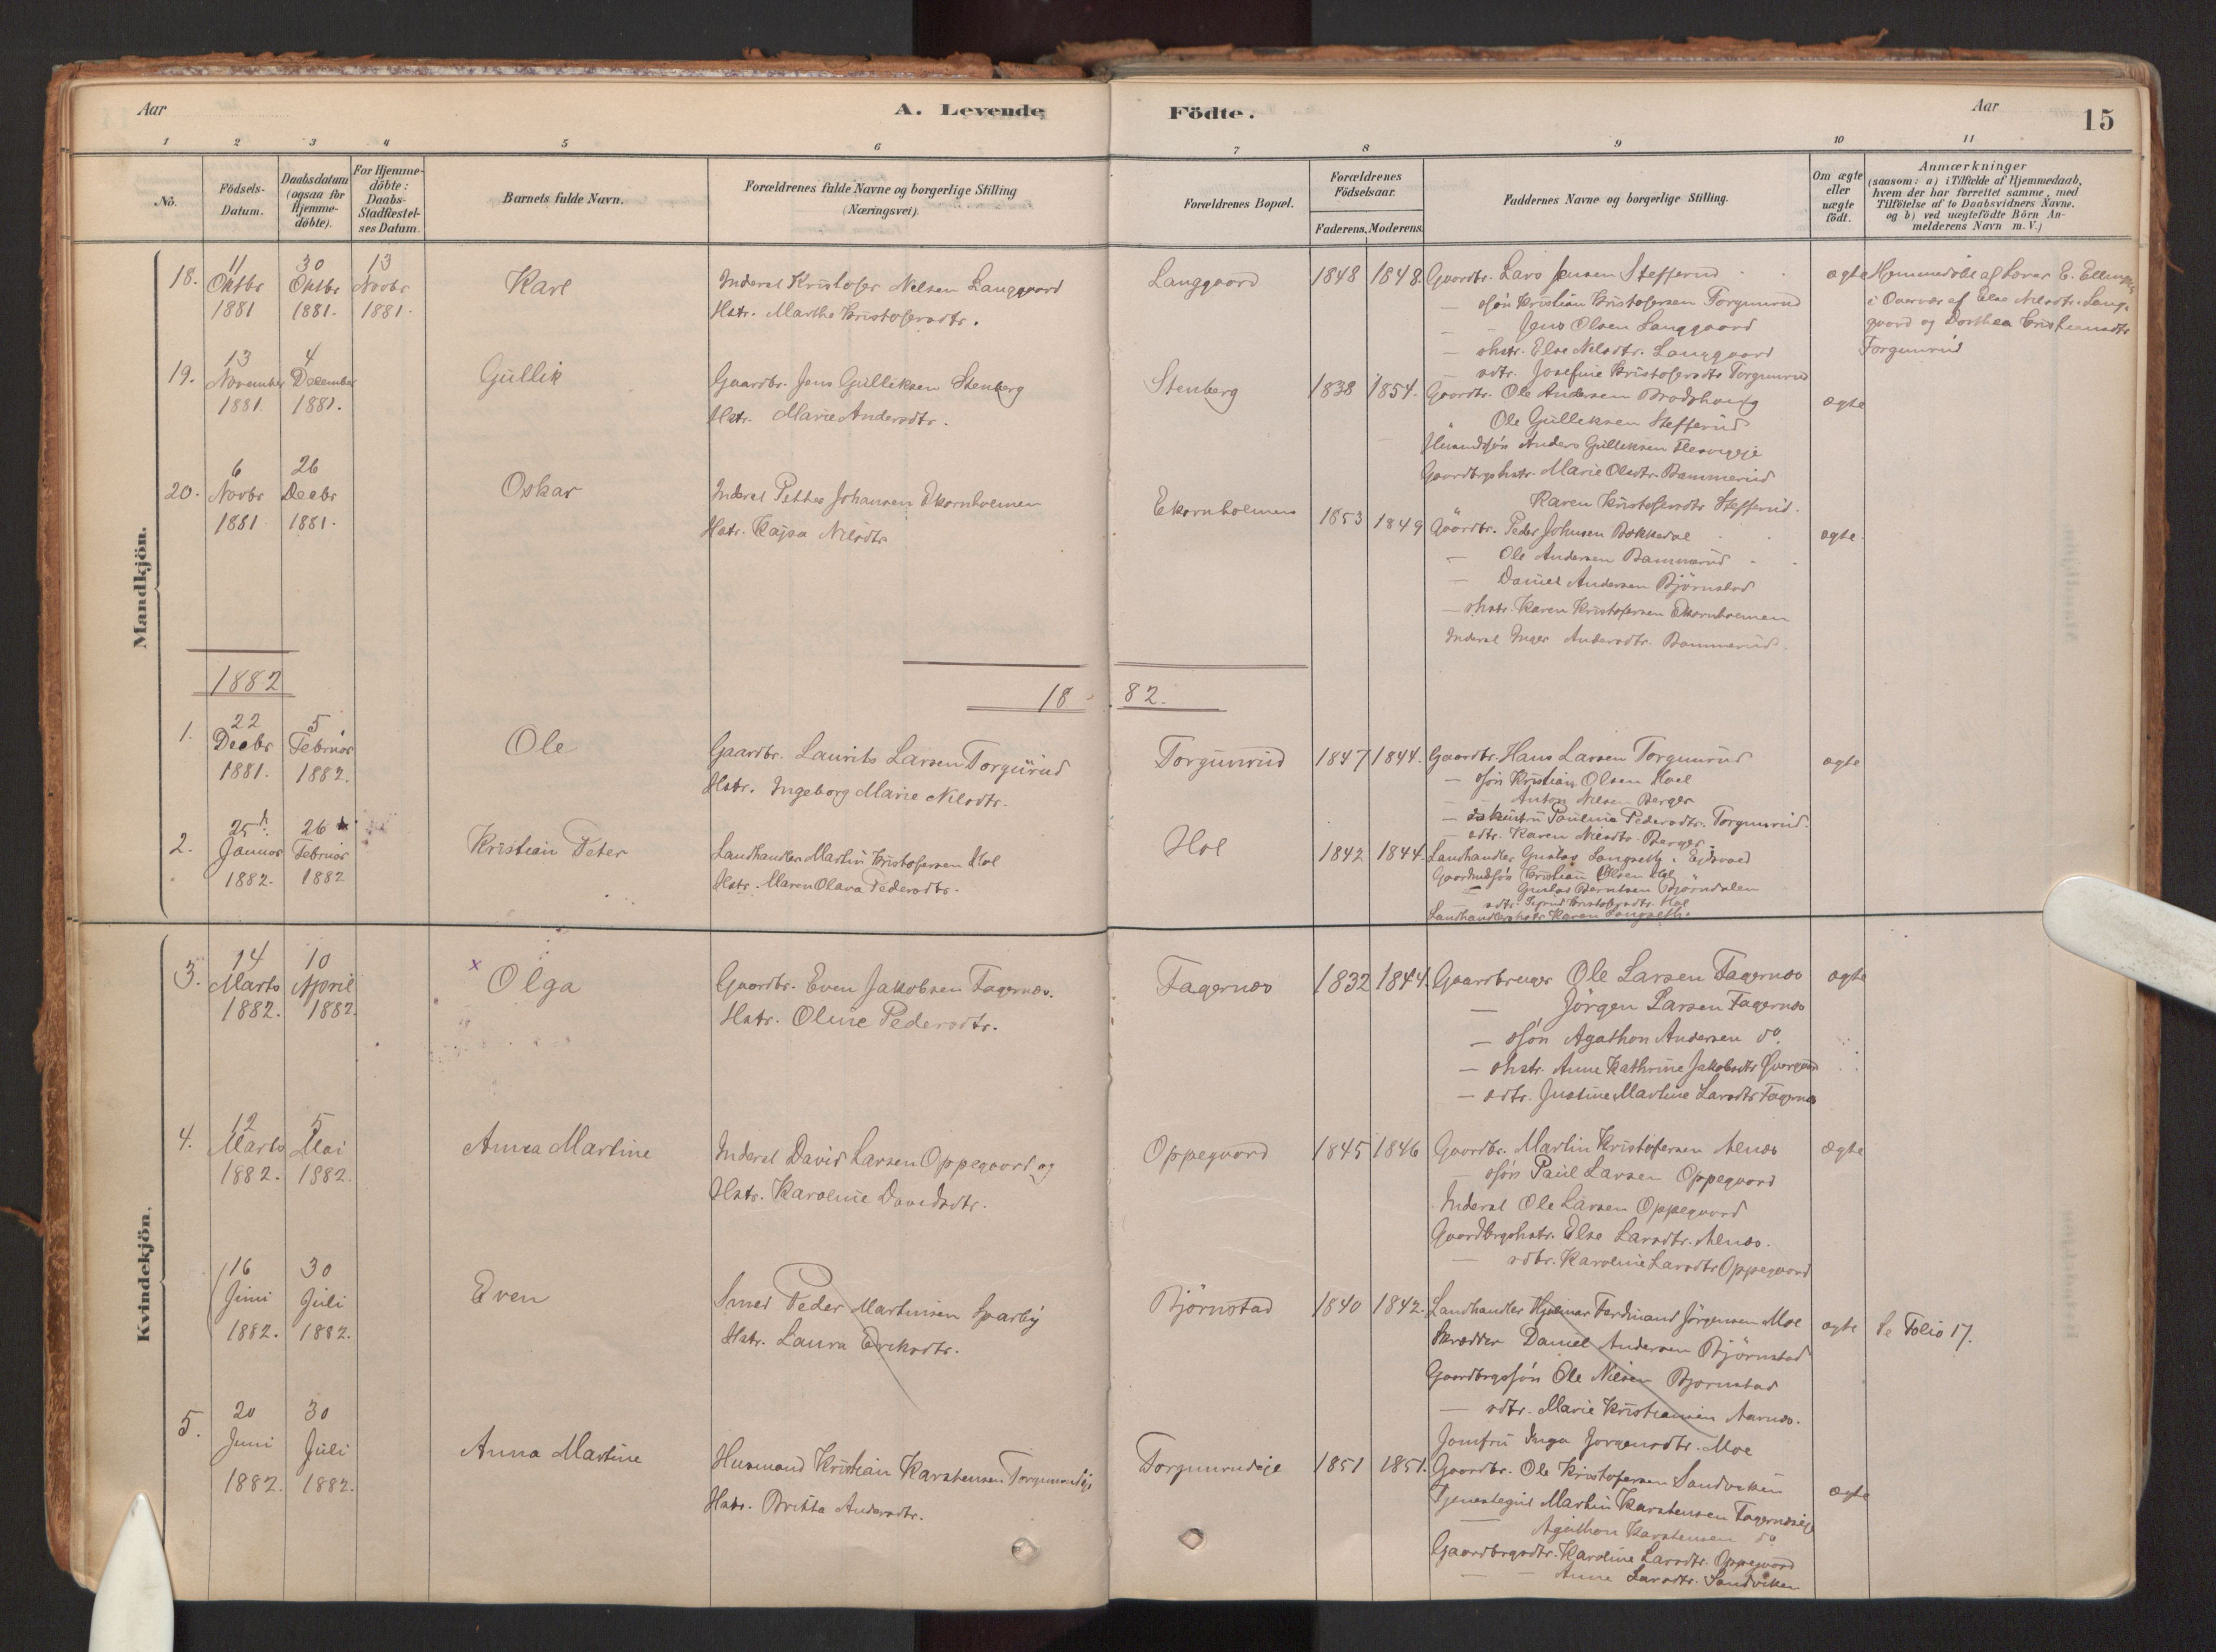 Aar
A. Levende
Födte.
Aar
15
1 2 3 4 5 6 7 8 9 10 11
No.
Födsels-
Datum.
Daabsdatum
(ogsaa for
Hjemme-
döbte).
For Hjemme-
döbte:
Daabs-
Stadfæstel-
ses Datum.
Barnets fulde Navn.
Forældrenes fulde Navne og borgerlige Stilling
(Næringsvei).
Forældrenes Bopæl.
Forældrenes
Födselsaar.
Faderens. Moderens.
Faddernes Navne og borgerlige Stilling.
Om ægte
eller
uægte
födt.
Anmærkninger
(saasom: a) i Tilfælde af Hjemmedaab,
hvem der har forrettet samme, med
Tilföielse af to Daabsvidners Navne.
og b) ved uægtefödte Börn An-
melderens Navn m. V.)
Mandkjön.
18.
11
Oktbr
1881
30
Oktbr
1881.
13
Novbr
1881.
Karl
Inderst Kristofer Nelsen Langgaard
Hstr. Marthe Kristofersdtr.
Langgaard
1848
1848.
Gaardbr. Lars Jensen Stefferud
— ssön Kristian Kristofersen Torgunrud
— Jens Olsen Langgaard
— shstr. Else Nelsdtr. Langgaard
— sdtr. Josefine Kristofersdtr Torgunrud
ægte
Hjemmedöbt af Lærer E.
i Overvær af Else Nilsdtr. Lang-
gaard og Dorthea Cristiansdtr
Torgunrud
19.
13
November
1881.
4
December
1881.
Gullik
Gaardbr. Jens Gulliksen Stenberg
Hstr. Marie Andersdtr.
Stenberg
1838
1854.
Gaardbr. Ole Andersen
Ole Gulliksen Stefferud
Anders Gulliksen
Gaardbrgshstr. Marie Olsdtr. Bammerud
Karen Kristofersdtr Stefferud.
ægte
20.
6
Novbr
1881
26
Decbr
1881.
Oskar
Inderst Petter Johansen Ekornholmen
Hstr. Kajsa Nilsdtr
Ekornholmen
1853
1849
Gaardbr. Peder Johnsen Bækkedal
— Ole Andersen Bammerud
— Daniel Andersen Björnstad
— shstr. Karen Kristofersen Ekornholmen
Inderst Inger Andersdtr. Bammerud.
ægte.
1882
18
82.
1.
22
Decbr
1881.
5
Februar
1882.
Ole
Gaardbr. Laurits Larsen Torgunrud
Hstr. Ingeborg Marie Nilsdtr.
Torgunrud
1847
1844.
Gaardbr. Hans Larsen Torgunrud
— ssön Kristian Olsen Hoel
— Anton Nilsen Berger
— Pauline Pedersdtr. Torgunrud.
— sdtr. Karen Nilsdtr. Berger.
ægte
2.
25d.
Januar
1882.
26d
Februar
1882
Kristian Peter
Landhandler Martin Kristofersen Hol
Hstr. Maren Olava Pedersdtr.
Hol
1842
1844.
Landhandler Gustav Langseth, Eidsvold
Kristian Olsen Hol
— Gustav Berntsen Björndalen
— sdtr. Sigrid Kristofersdtr. Hol
Landhandlershstr Karen Langseth.
Kvindekjön.
3.
14
Marts
1882.
10
April
1882.
x
Olga
Gaardbr. Even Jakobsen Fagernæs.
Hstr. Oline Pedersdtr.
Fagernæs
1832
1844.
Gaardbruger Ole Larsen Fagernæs
— Jörgen Larsen Fagernæs
— ssön Agathon Andersen do.
— shstr. Anne Kathrine Jakobsdtr
— sdtr. Justine Martine Larsdtr Fagernæs
ægte
4.
12
Marts
1882.
5
Mai
1882.
Anna Martine
Inderst David Larsen Oppegaard og
Hstr. Karoline Davidsdtr.
Oppegaard
1845
1846
Gaardbr. Martin Kristofersen Alnæs
— ssön Paul Larsen Oppegaard
Inderst Ole Larsen Oppegaard
Gaardbrgshstr. Else Larsdtr. Alnæs.
— sdtr. Karoline Larsdtr Oppegaard
Ægte
16
Juni
1882.
30
Juli
1882.
Even
Smed Peder Martinsen Sparby
Hstr. Laura Eriksdtr.
Björnstad
1840
1842.
Landhandler Hjalmar Ferdinand Jörgensen Moe
Skrædder Daniel Andersen Björnstad
Gaardbrgssön Ole Nilsen Bjornstad
— sdtr. Marie Kristiansen Aarnæs.
Jomfru Inga Jorgensdtr. Moe
ægte
Se Folio 17.
5.
20
Juni
1882.
30
Juli
1882.
Anna Martine
Husmand Kristian Karstensen Torgunrudeje
Hstr. Britta Andersdtr.
Torgunrudeje
1851
1851.
Gaardbr. Ole Kristofersen Sandviken
Martin Karstensen Fagernæseje
— Agathon Karstensen do
Gaardbrgsdtr. Karoline Larsdtr. Oppegaard
— — Anne Larsdtr. Sandviken
Ægte